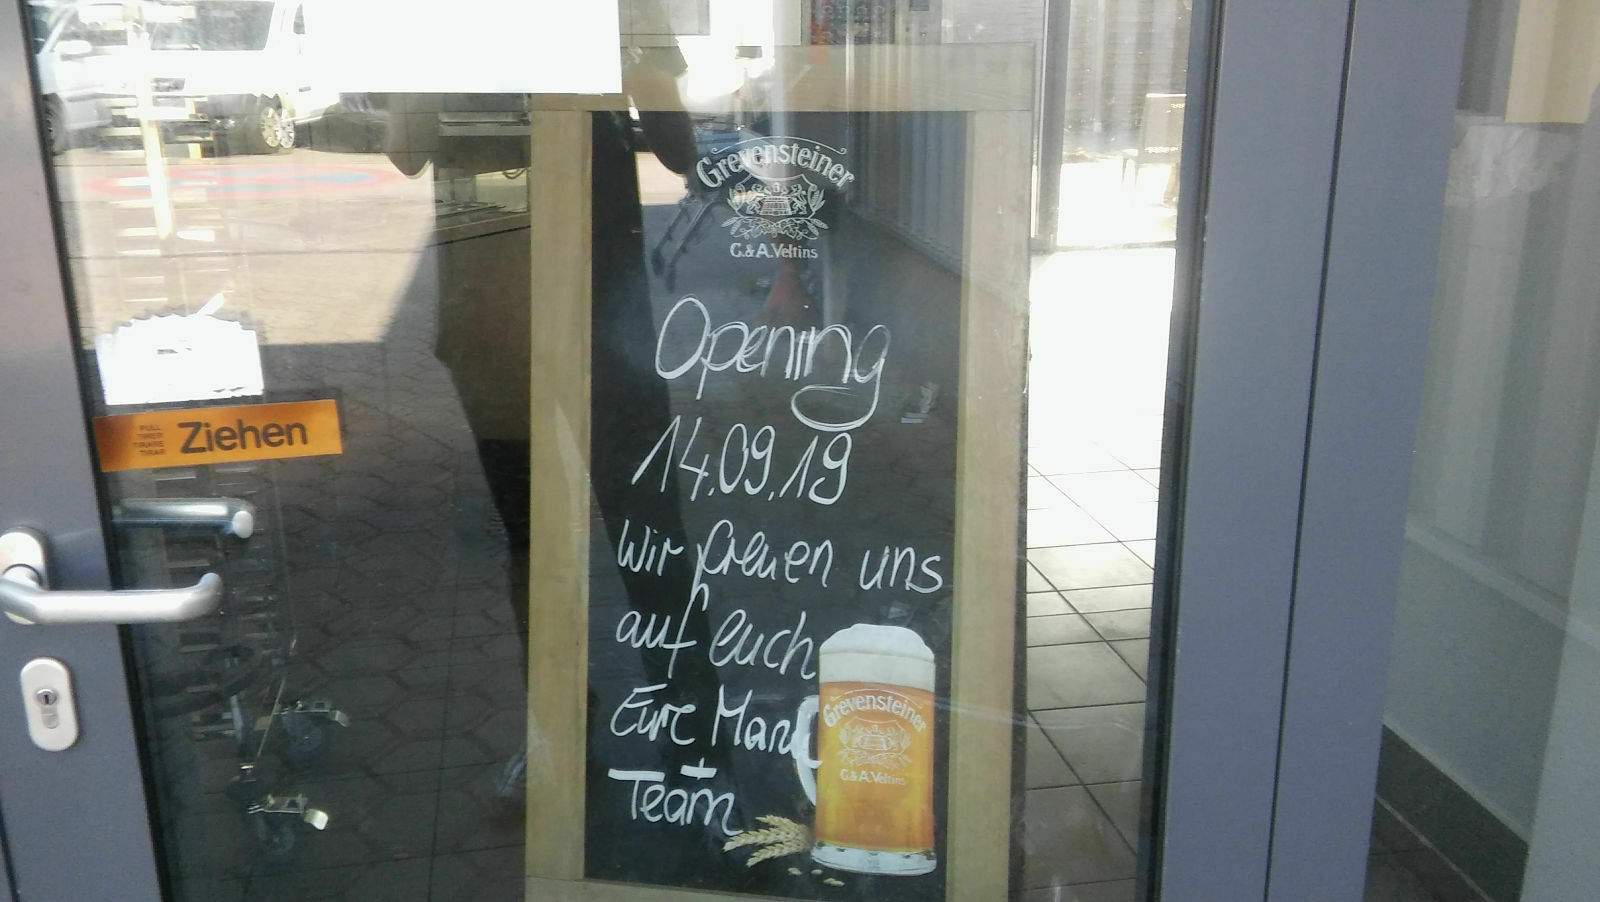 Grevensteiner
C.& A. Veltins
Opening
14.09.19
Wir freuen uns
auf euch
Eure
+
Team
PULL
TIRER
TIRARE
TIRAR
Ziehen
Grevensteiner
C.& A. Veltins